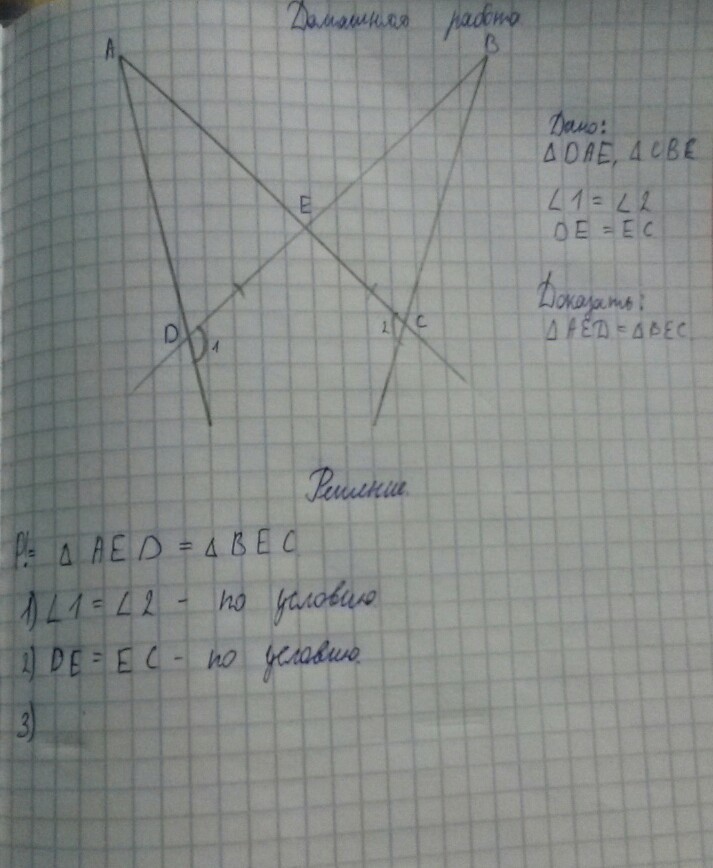 Домашняя работа
A
B
Дано:
Δ DAE, Δ CBE
∠1 = ∠2
DE = EC
E
Доказать:
Δ AED = Δ BEC
D
1
2
C
Решение.
Р/= Δ AED = Δ BEC
1) ∠1 = ∠2 - по условию
2) DE = EC - по условию.
3)